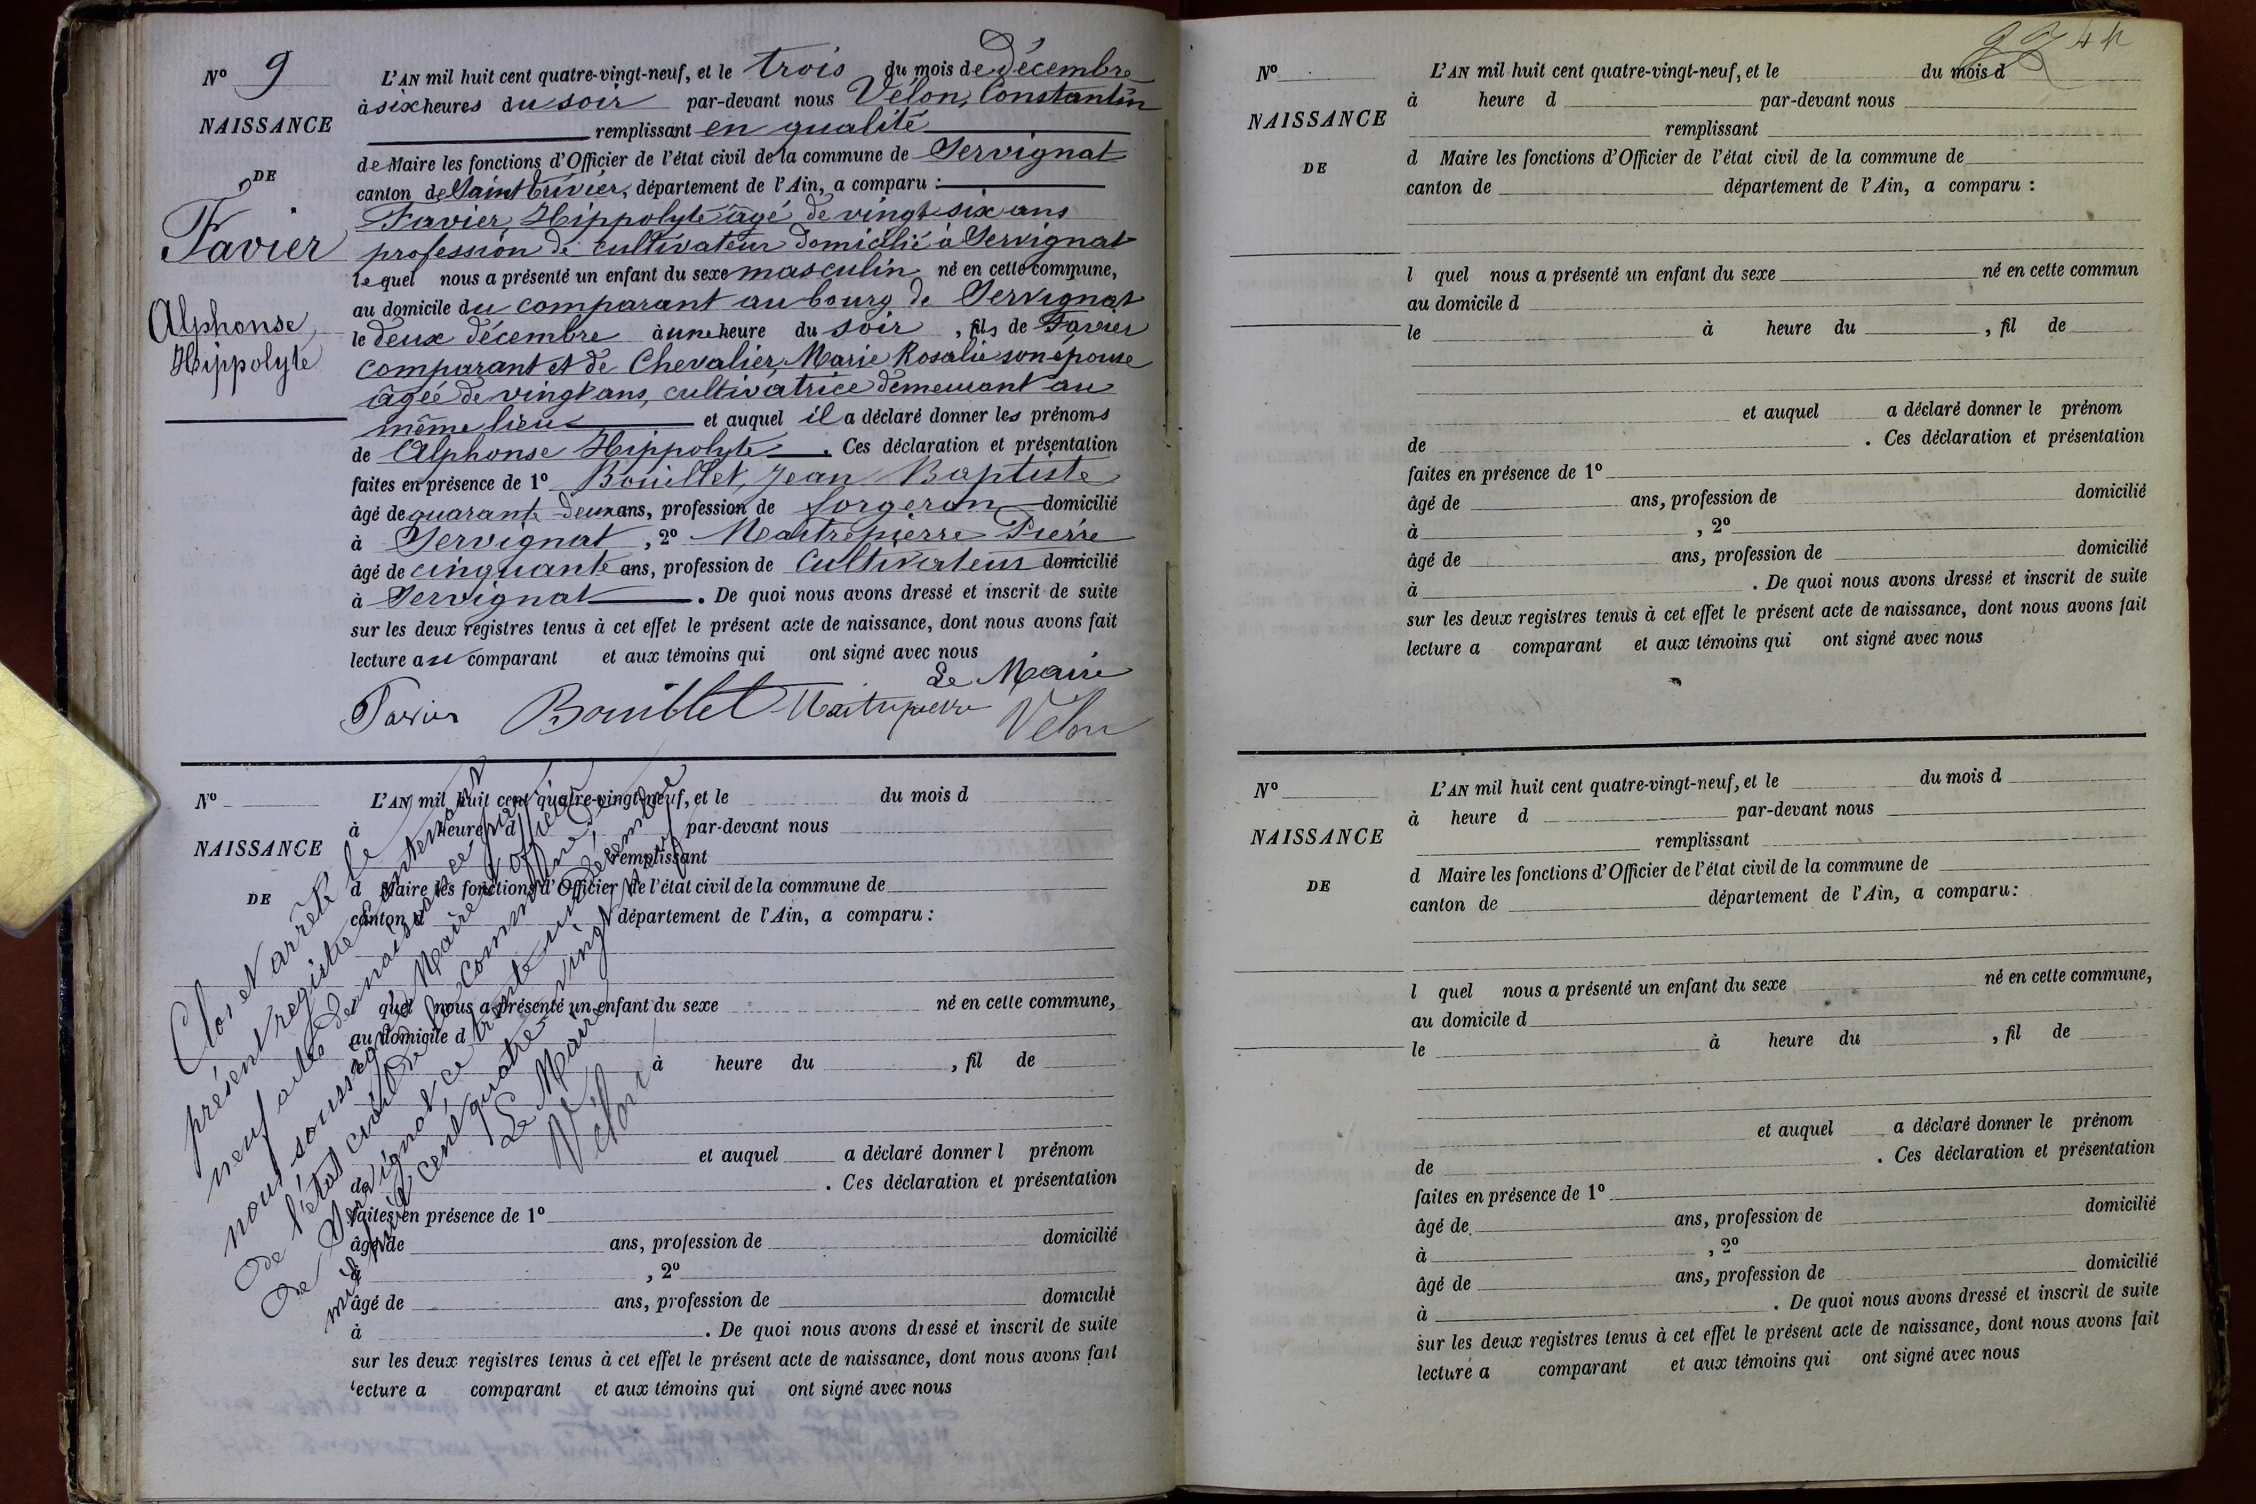 N° 9
NAISSANCE
DE
Favier
Alphonse
Hippolyte
L'AN mil huit cent quatre-vingt-neuf, et le trois du mois de Décembre
à six heures du soir par-devant nous Vélon, Constantin
remplissant en qualité
de Maire les fonctions d'Officier de l'état civil de la commune de Servignat
canton de Saint Trivier, département de l'Ain, a comparu :
Favier, Hippolyte âgé de vingt six ans
profession de cultivateur domicilié à Servignat
lequel nous a présenté un enfant du sexe masculin né en cette commune,
au domicile du comparant au bourg de Servignat
le deux décembre à une heure du soir, fils de Favier
comparant et de Chevalier, Marie Rosalie son épouse
âgée de vingt ans, cultivatrice demeurant au
même lieu et auquel il a déclaré donner les prénoms
de Alphonse Hippolyte. Ces déclaration et présentation
faites en présence de 1° Bouillet, Jean Baptiste
âgé de quarante deux ans, profession de forgeron domicilié
à Servignat, 2° Maitrepierre Pierre
âgé de cinquante ans, profession de Cultivateur domicilié
à Servignat. De quoi nous avons dressé et inscrit de suite
sur les deux registres tenus à cet effet le présent acte de naissance, dont nous avons fait
lecture au comparant et aux témoins qui ont signé avec nous
Le Maire
Favier Bouillet Maitrepierre Vélon
N°
NAISSANCE
DE
L'AN mil huit cent quatre-vingt-neuf, et le du mois d
à heure d par-devant nous
remplissant
d Maire les fonctions d'Officier de l'état civil de la commune de
canton d département de l'Ain, a comparu :
l quel nous a présenté un enfant du sexe né en cette commune,
au domicile d
à heure du , fil de
et auquel a déclaré donner l prénom
de . Ces déclaration et présentation
faites en présence de 1°
âgé de ans, profession de domicilié
à , 2°
âgé de ans, profession de domicilié
à . De quoi nous avons dressé et inscrit de suite
sur les deux registres tenus à cet effet le présent acte de naissance, dont nous avons fait
lecture a comparant et aux témoins qui ont signé avec nous
Clos et arrêté le
présent registre contenant
neuf actes de naissance, par
nous soussigné Maire et officier
de l'état civil de la Commune
de Servignat ce trente un décembre
mil huit cent quatre vingt neuf
Le Maire
Vélon
44
N°
NAISSANCE
DE
L'AN mil huit cent quatre-vingt-neuf, et le du mois d
à heure d par-devant nous
remplissant
d Maire les fonctions d'Officier de l'état civil de la commune de
canton de département de l'Ain, a comparu :
l quel nous a présenté un enfant du sexe né en cette commun
au domicile d
le à heure du , fil de
et auquel a déclaré donner le prénom
de . Ces déclaration et présentation
faites en présence de 1°
âgé de ans, profession de domicilié
à , 2°
âgé de ans, profession de domicilié
à . De quoi nous avons dressé et inscrit de suite
sur les deux registres tenus à cet effet le présent acte de naissance, dont nous avons fait
lecture a comparant et aux témoins qui ont signé avec nous
N°
NAISSANCE
DE
L'AN mil huit cent quatre-vingt-neuf, et le du mois d
à heure d par-devant nous
remplissant
d Maire les fonctions d'Officier de l'état civil de la commune de
canton de département de l'Ain, a comparu:
l quel nous a présenté un enfant du sexe né en cette commune,
au domicile d
le à heure du , fil de
et auquel a déclaré donner le prénom
de . Ces déclaration et présentation
faites en présence de 1°
âgé de ans, profession de domicilié
à , 2°
âgé de ans, profession de domicilié
à . De quoi nous avons dressé et inscrit de suite
sur les deux registres tenus à cet effet le présent acte de naissance, dont nous avons fait
lecture a comparant et aux témoins qui ont signé avec nous